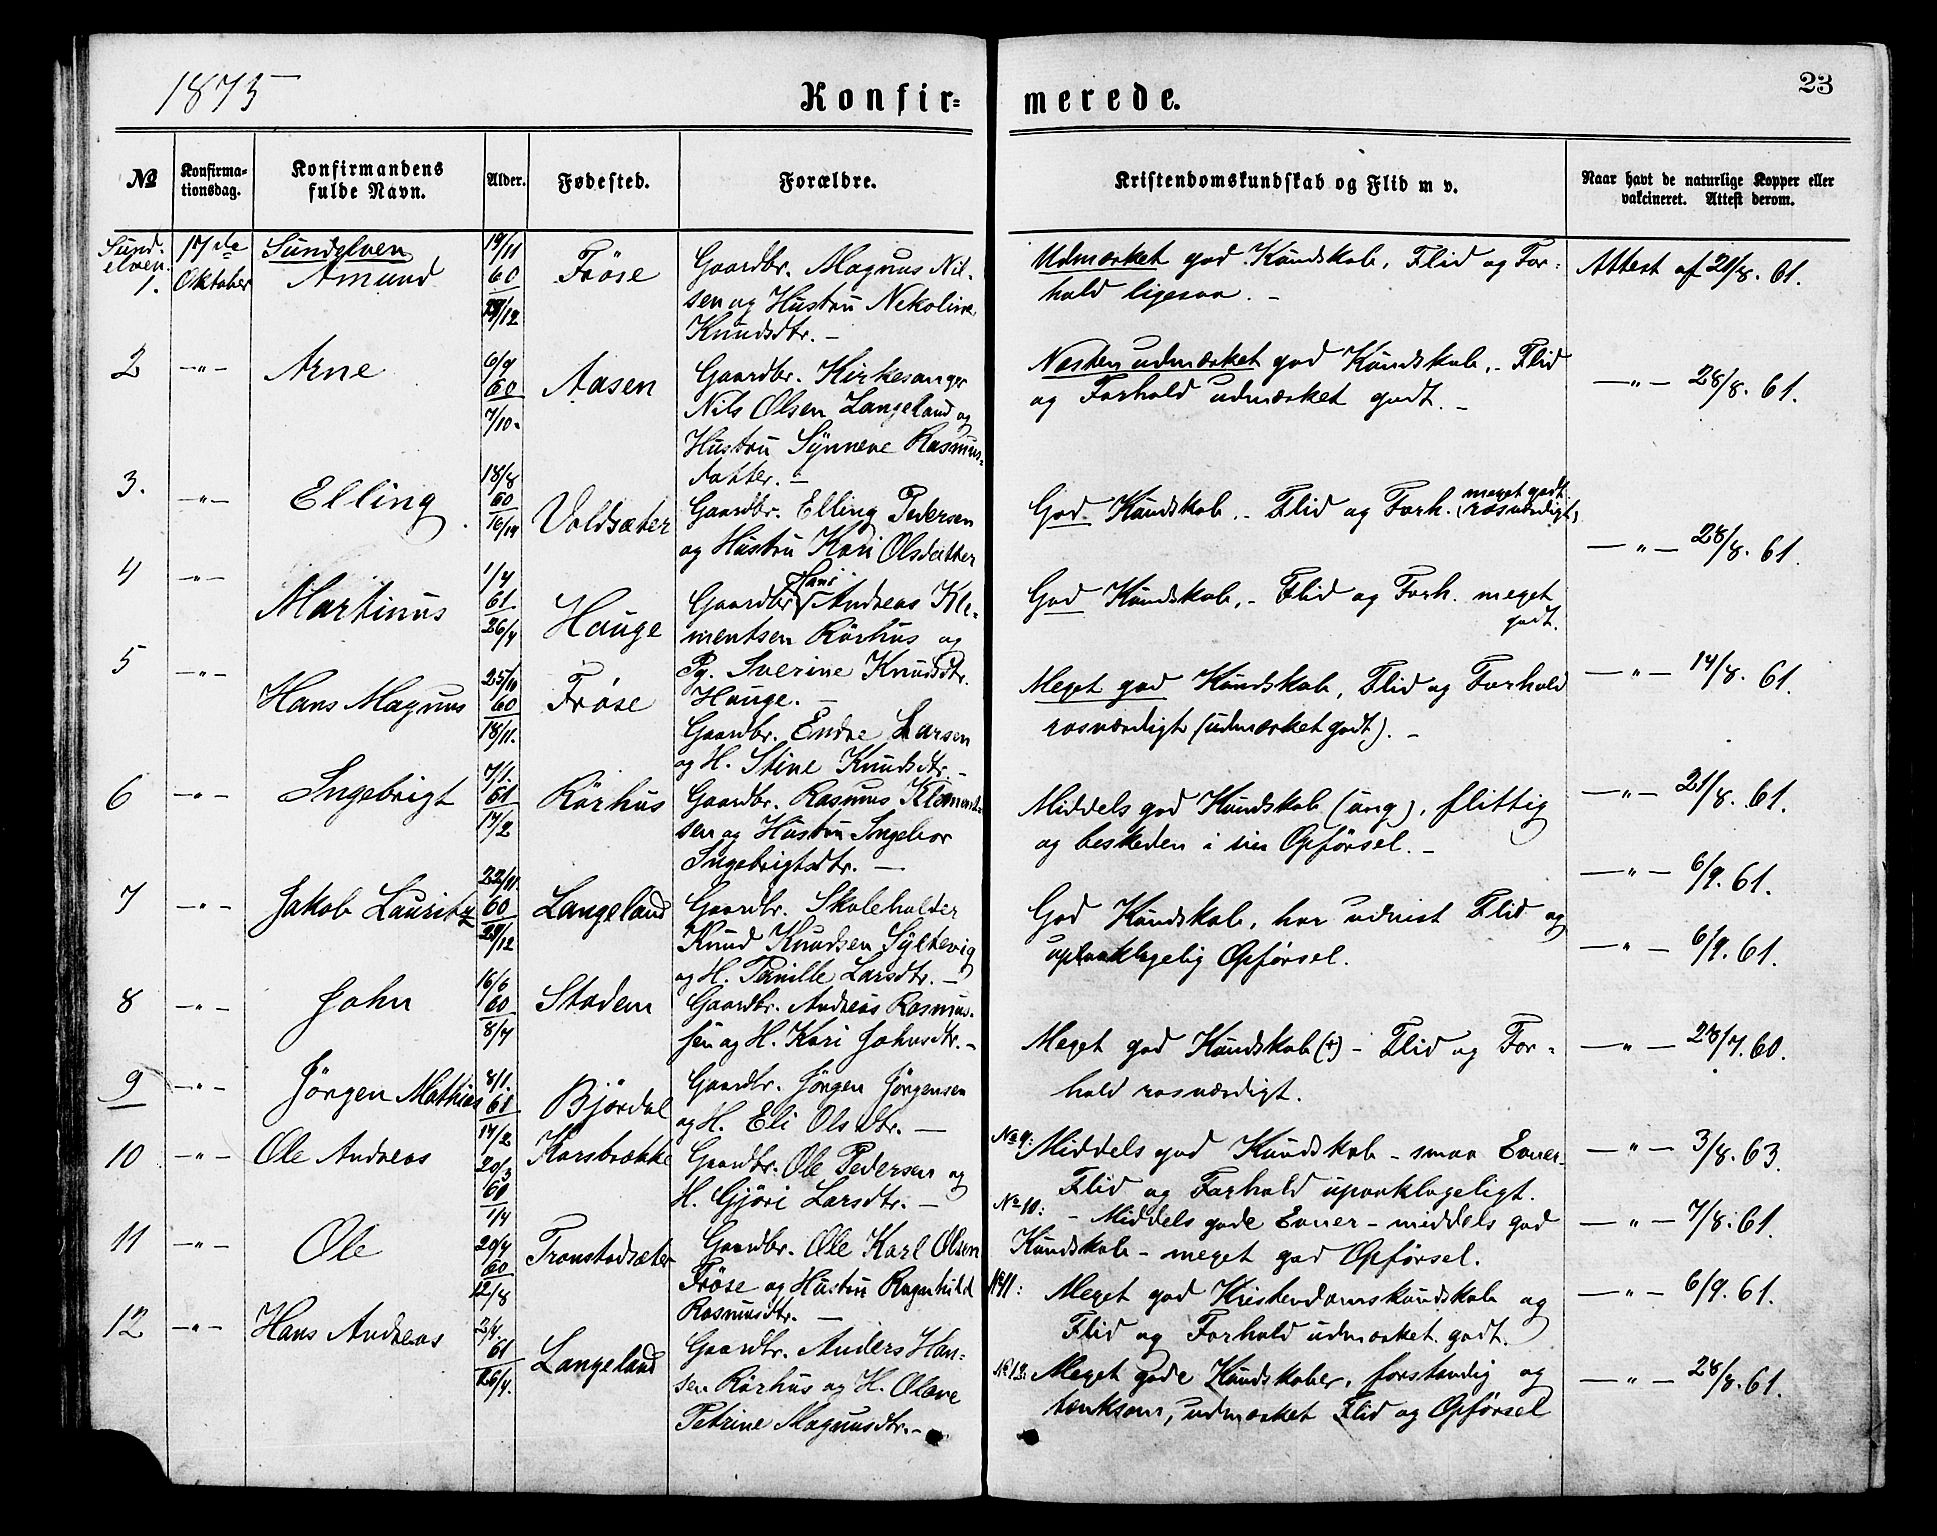 1875
Konfir=
merede.
23
№
Konfirma-
tionsdag.
Konfirmandens
fulde Navn.
Alder.
Fødested.
Forældre.
Kristendomskundskab og Flid m v.
Naar havt de naturlige Kopper eller
vakcineret. Attest derom.
Sund-
elven.
1.
17de
Oktober
Sundelven
Amund
19/11
60
29/12
Fröse
Gaardbr. Magnus Nil-
sen og Hustru Nekoline
Knudsdtr. -
Udmærket god Kundskab, Flid og For-
hold ligesaa. -
Attest af 21/8. 61.
2
-"-
Arne
6/9
60
7/10.
Aasen
Gaardbr. Kirkesanger
Nils Olsen Langeland og
Hustru Synneve Rasmus-
datter. -
Næsten udmærket god Kundskab, - Flid
og Forhold udmærket godt. -
-"- 28/8. 61.
3.
-"-
Elling
18/8
60
16/14
Voldsæter
Gaardbr. Elling Pedersen
og Hustru Kari Olsdatter
God Kundskab. - Flid og Forh. meget godt
(rosværdigt)
-"- 28/8. 61.
4
-"-
Martinus
1/4
61
26/4
Hauge
Gaardbr. Hans Andreas Kle-
mentsen Rörhus og
Pg. Sverine Knudsdtr.
Hauge. -
God Kundskab, - Flid og Forh. meget
godt.
-"- 14/8. 61.
5
-"-
Hans Magnus
25/10
60
18/11.
Fröse
Gaardbr. Endre Larsen
og H. Stine Knudsdtr. -
Meget god Kundskab, Flid og Forhold
rosværdigt (udmærket godt). -
-"- 21/8. 61.
6
-"-
Ingebrigt
7/1.
61
17/2
Rörhus
Gaardbr. Rasmus Klement-
sen og Hustru Ingebor
Ingebrigtsdtr. -
Middels god Kundskab (ung), flittig
og beskeden i sin Opførsel. -
-"- 6/9. 61.
7
-"-
Jakob Lauritz
22/11.
60
29/12
Langeland
Gaardbr. Skoleholder
Knud Knudsen Syltevig
og H. Pernille Larsdtr. -
God Kundskab, har udvist Flid og
upaaklagelig Opførsel.
-"- 6/9. 61.
8
-"-
John
16/6
60
8/7
Stadem
Gaardbr. Andreas Rasmus-
sen og H. Kari Johnsdtr. -
Meget god Kundskab (+) - Flid og For-
hold rosværdigt.
-"- 28/7. 60.
9
-"-
Jörgen Mathias
8/1.
61
17/2
Bjørdal
Gaardbr. Jørgen Jørgensen
og H. Eli Olsdtr. -
No 9: Middels god Kundskab - smaa Evner -
Flid og Forhold upaaklageligt.
-"- 3/8. 63.
10
-"-
Ole Andreas
20/3
60
1/4
Korsbrekke
Gaardbr. Ole Pedersen og
H. Gjöri Larsdtr. -
No 10: - Middels gode Evner - middels god
Kundskab - meget god Opførsel.
-"- 7/8. 61.
11
-"-
Ole
20/7
60
12/8
Tronstadsæter
Gaardbr. Ole Karl Olsen
Fröse og Hustru Ragnhild
Rasmusdtr. -
No 11: Meget god Kristendomskundskab og
Flid og Forhold udmærket godt.
-"- 6/9. 61.
12
-"-
Hans Andreas
2/4.
61
26/4.
Langeland
Gaardbr. Anders Han-
sen Rörhus og H. Olave
Petrine Magnusdtr. -
No 12: Meget gode Kundskaber, forstandig og
tænksom, udmærket Flid og Opførsel
-"- 28/8. 61.